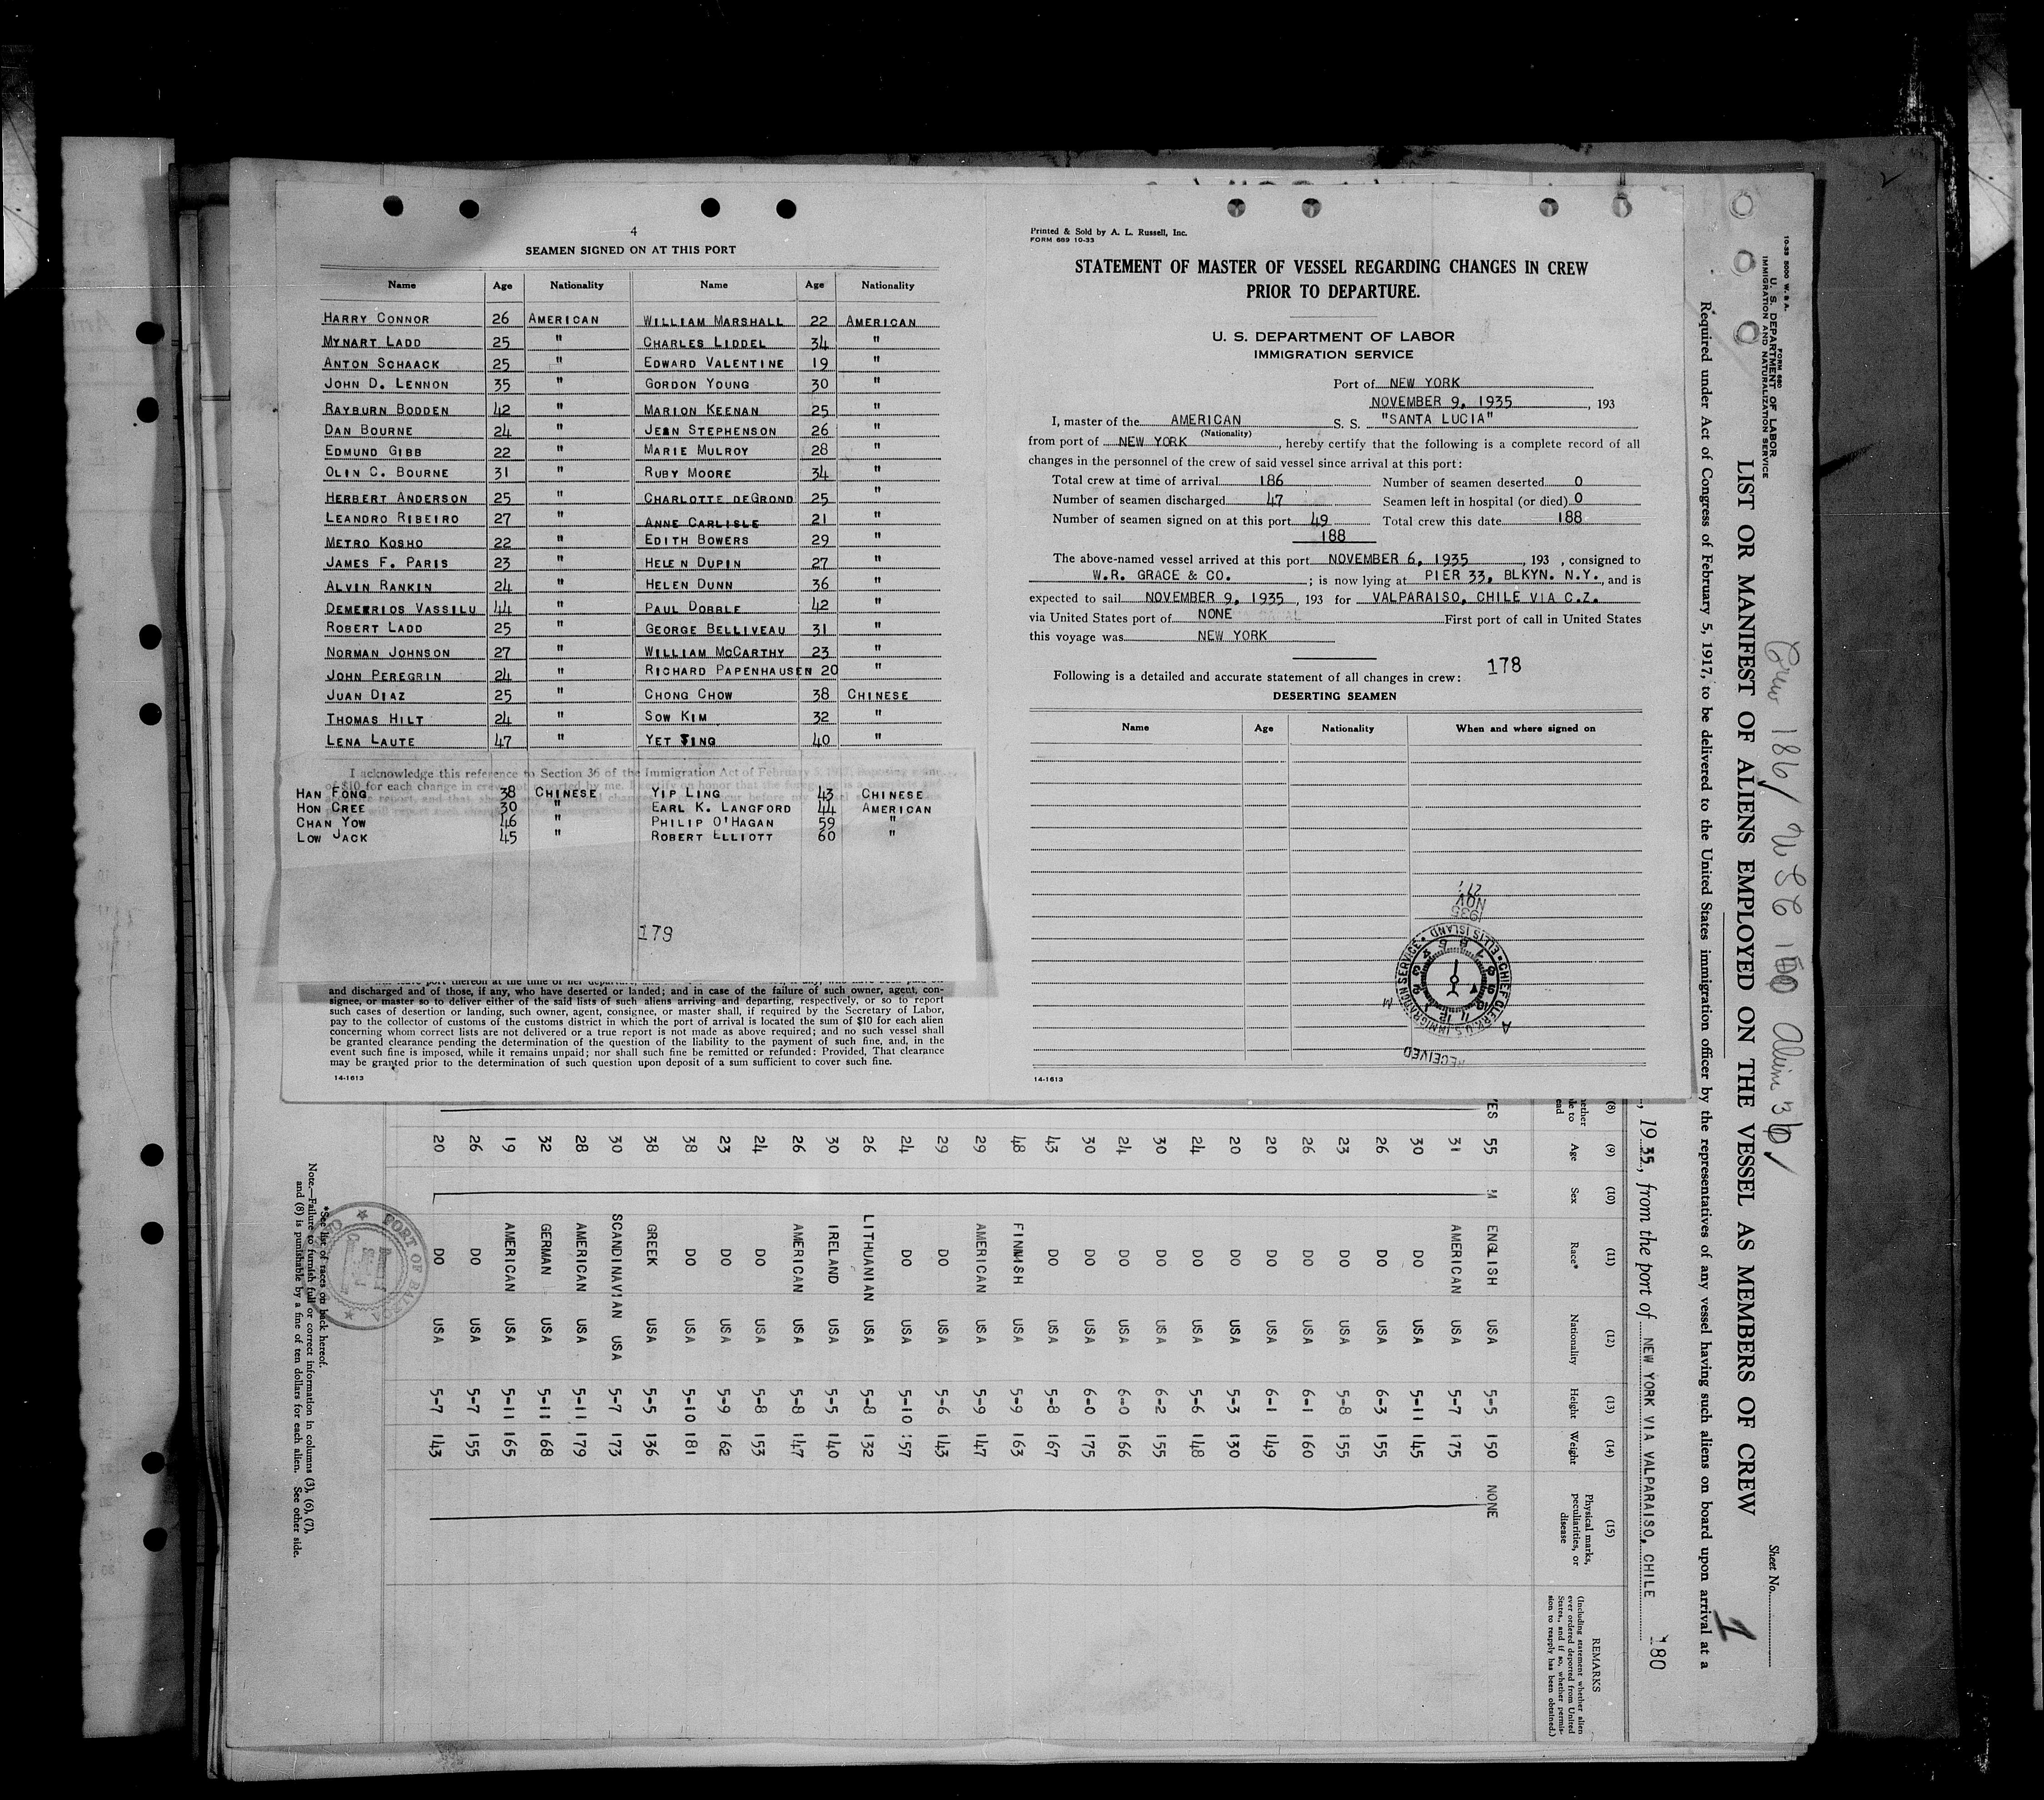 4
SEAMEN SIGNED ON AT THIS PORT
Name Age Nationality Name Age Nationality
HARRY CONNOR 26 AMERICAN WILLIAM MARSHALL 22 AMERICAN
MYNART LADD 25 " CHARLES LIDDEL 34 "
ANTON SCHAACK 25 " EDWARD VALENTINE 19 "
JOHN D. LENNON 35 " GORDON YOUNG 30 "
RAYBURN BODDEN 42 " MARION KEENAN 25 "
DAN BOURNE 24 " JEAN STEPHENSON 26 "
EDMUND GIBB 22 " MARIE MULROY 28 "
OLIN C. BOURNE 31 " RUBY MOORE 34 "
HERBERT ANDERSON 25 " CHARLOTTE DEGROND 25 "
LEANDRO RIBEIRO 27 " ANNE CARLISLE 21 "
METRO KOSHO 22 " EDITH BOWERS 29 "
JAMES F. PARIS 23 " HELEN DUPIN 27 "
ALVIN RANKIN 24 " HELEN DUNN 36 "
DEMETRIOS VASSILU 44 " PAUL DOBBLE 42 "
ROBERT LADD 25 " GEORGE BELLIVEAU 31 "
NORMAN JOHNSON 27 " WILLIAM MCCARTHY 23 "
JOHN PEREGRIN 24 " RICHARD PAPENHAUSEN 20 "
JUAN DIAZ 25 " CHONG CHOW 38 CHINESE
THOMAS HILT 24 " SOW KIM 32 "
LENA LAUTE 47 " YET SING 40 "
I acknowledge this reference to Section 36 of the Immigration Act of February 5, 1917,
HAN FONG 38 CHINESE YIP LING 43 CHINESE
HON CREE 30 " EARL K. LANGFORD 44 AMERICAN
CHAN YOW 46 " PHILIP O'HAGAN 59 "
LOW JACK 45 " ROBERT ELLIOTT 60 "
179
and discharged and of those, if any, who have deserted or landed; and in case of the failure of such owner, agent, con-
signee, or master so to deliver either of the said lists of such aliens arriving and departing, respectively, or so to report
such cases of desertion or landing, such owner, agent, consignee, or master shall, if required by the Secretary of Labor,
pay to the collector of customs of the customs district in which the port of arrival is located the sum of $10 for each alien
concerning whom correct lists are not delivered or a true report is not made as above required; and no such vessel shall
be granted clearance pending the determination of the question of the liability to the payment of such fine, and, in the
event such fine is imposed, while it remains unpaid; nor shall such fine be remitted or refunded: Provided, That clearance
may be granted prior to the determination of such question upon deposit of a sum sufficient to cover such fine.
14-1613
Printed & Sold by A. L. Russell, Inc.
FORM 689 10-33
STATEMENT OF MASTER OF VESSEL REGARDING CHANGES IN CREW
PRIOR TO DEPARTURE.
U. S. DEPARTMENT OF LABOR
IMMIGRATION SERVICE
Port of NEW YORK
NOVEMBER 9, 1935, 193
I, master of the AMERICAN S. S. "SANTA LUCIA"
(Nationality)
from port of NEW YORK, hereby certify that the following is a complete record of all
changes in the personnel of the crew of said vessel since arrival at this port:
Total crew at time of arrival 186 Number of seamen deserted 0
Number of seamen discharged 47 Seamen left in hospital (or died) 0
Number of seamen signed on at this port 49 Total crew this date 188
188
The above-named vessel arrived at this port NOVEMBER 6, 1935, 193 , consigned to
W.R. GRACE & CO. ; is now lying at PIER 33, BLKYN. N.Y., and is
expected to sail NOVEMBER 9, 1935, 193 for VALPARAISO, CHILE VIA C.Z.
via United States port of NONE First port of call in United States
this voyage was NEW YORK
178
Following is a detailed and accurate statement of all changes in crew:
DESERTING SEAMEN
Name Age Nationality When and where signed on
1935
NOV
CHIEF CLERK U.S. IMMIGRATION SERVICE * ELLIS ISLAND *
RECEIVED
14-1613
10-33 5000 W. & A.
FORM 680
U. S. DEPARTMENT OF LABOR
IMMIGRATION AND NATURALIZATION SERVICE
Sheet No.
1
Crew 186/ USC 150 Alien 36/
LIST OR MANIFEST OF ALIENS EMPLOYED ON THE VESSEL AS MEMBERS OF CREW
Required under Act of Congress of February 5, 1917, to be delivered to the United States immigration officer by the representatives of any vessel having such aliens on board upon arrival at a
, 1935, from the port of NEW YORK VIA VALPARAISO, CHILE
180
(8) (9) (10) (11) (12) (13) (14) (15)
Age Sex Race* Nationality Height Weight Physical marks, peculiarities, or disease
REMARKS
(Including statement whether alien
ever ordered deported from United
States, and if so, whether permis-
sion to reapply has been obtained.)
YES 55 M ENGLISH USA 5-5 150 NONE
31 AMERICAN USA 5-7 175
30 DO USA 5-11 145
26 DO USA 6-3 155
23 DO USA 5-8 155
26 DO USA 6-1 160
20 DO USA 6-1 149
20 DO USA 5-3 130
24 DO USA 5-6 148
30 DO USA 6-2 155
24 DO USA 6-0 166
30 DO USA 6-0 175
43 DO USA 5-8 167
48 FINNISH USA 5-9 163
29 AMERICAN USA 5-9 147
29 DO USA 5-6 143
24 DO USA 5-10 157
26 LITHUANIAN USA 5-8 132
30 IRELAND USA 5-5 140
26 AMERICAN USA 5-8 147
24 DO USA 5-8 153
23 DO USA 5-9 162
38 DO USA 5-10 181
38 GREEK USA 5-5 136
30 SCANDINAVIAN USA 5-7 173
28 AMERICAN USA 5-11 179
32 GERMAN USA 5-11 168
19 AMERICAN USA 5-11 165
26 DO USA 5-7 155
20 DO USA 5-7 143
*See list of races on back hereof.
Note.—Failure to furnish full or correct information in columns (3), (6), (7),
and (8) is punishable by a fine of ten dollars for each alien. See other side.
PORT OF BALBOA